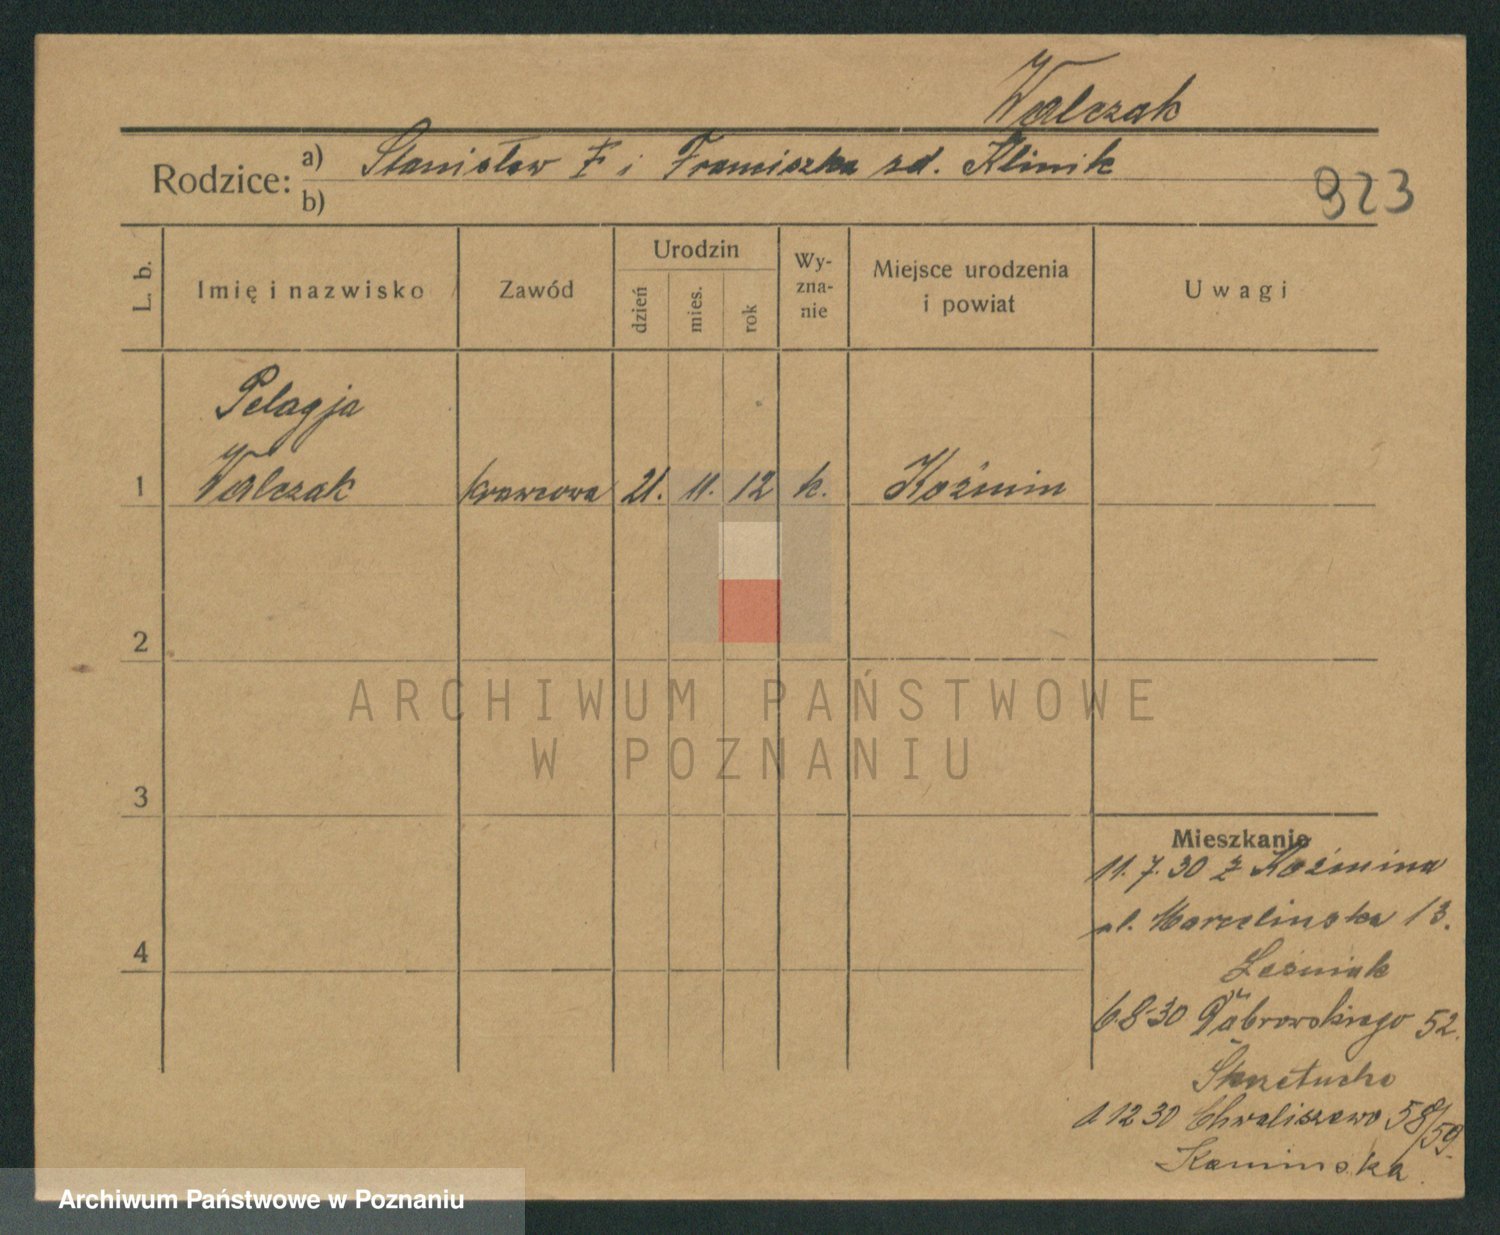 Walczak
Rodzice: a) Stanisław i Franciszka zd. Klinik
b)
923
L. b.
Imię i nazwisko
Zawód
Urodzin
dzień
mies.
rok
Wy-
zna-
nie
Miejsce urodzenia
i powiat
Uwagi
Pelagja
1 Walczak krawcowa 21. 11. 12 k. Koźmin
2
3
4
Mieszkanie
11.7.30 z Koźmina
ul. Marcelińska 13.
Leśniak
6.8.30 Dąbrowskiego 52.
1 12 30 Chwaliszewo 58/59.
Kamińska
ARCHIWUM PAŃSTWOWE
W POZNANIU
Archiwum Państwowe w Poznaniu